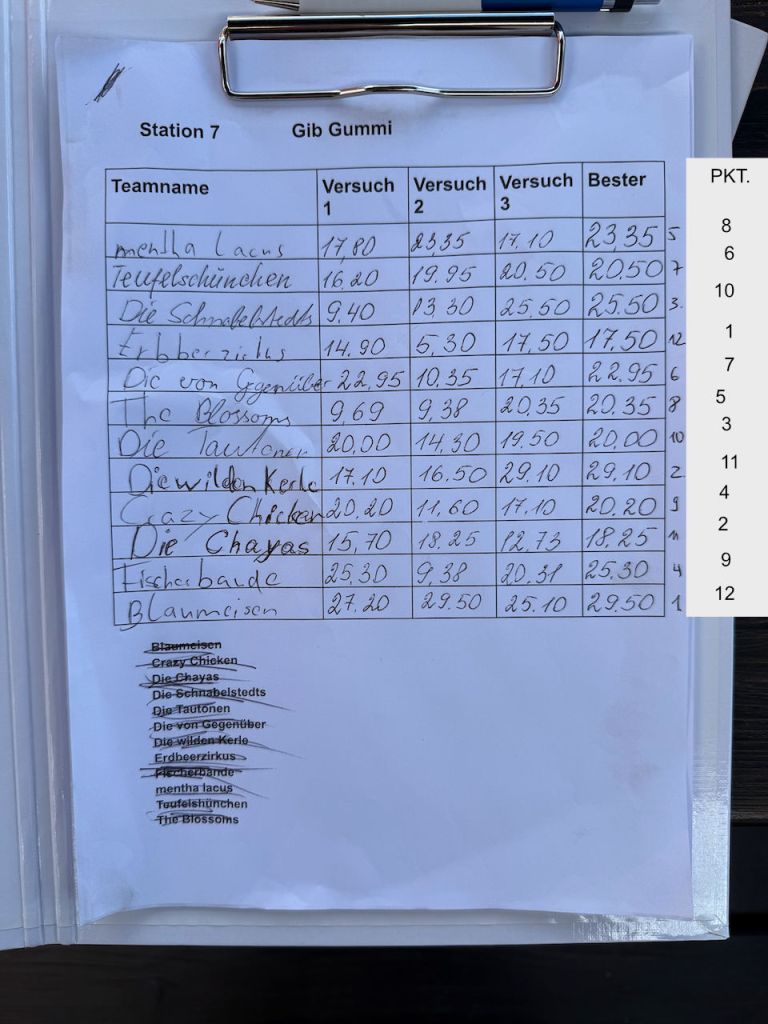 Station 7 Gib Gummi
Teamname Versuch 1 Versuch 2 Versuch 3 Bester PKT.
mentha lacus 17,80 23,35 17.10 23,35 5 8
Teufelschünchen 16,20 19.95 20.50 20,50 7 6
Die Schnabelstedts 9,40 13,30 25.50 25.50 3. 10
Erbberzirkus 14.90 5,30 17,50 17.50 12 1
Die von Gegenüber 22,95 10.35 17.10 22.95 6 7
The Blossoms 9,69 9,38 20,35 20.35 8 5
Die Tautonen 20,00 14,30 19.50 20,00 10 3
Die wilden Kerle 17.10 16.50 29.10 29.10 2 11
Crazy Chicken 20.20 11.60 17.10 20.20 9 4
Die Chayas 15,70 18.25 12,73 18,25 11 2
Fischerbande 25,30 9,38 20,31 25.30 4 9
Blaumeisen 27.20 29.50 25.10 29.50 1 12
Blaumeisen
Crazy Chicken
Die Chayas
Die Schnabelstedts
Die Tautonen
Die von Gegenüber
Die wilden Kerle
Erdbeerzirkus
Fischerbande
mentha lacus
Teufelshünchen
The Blossoms